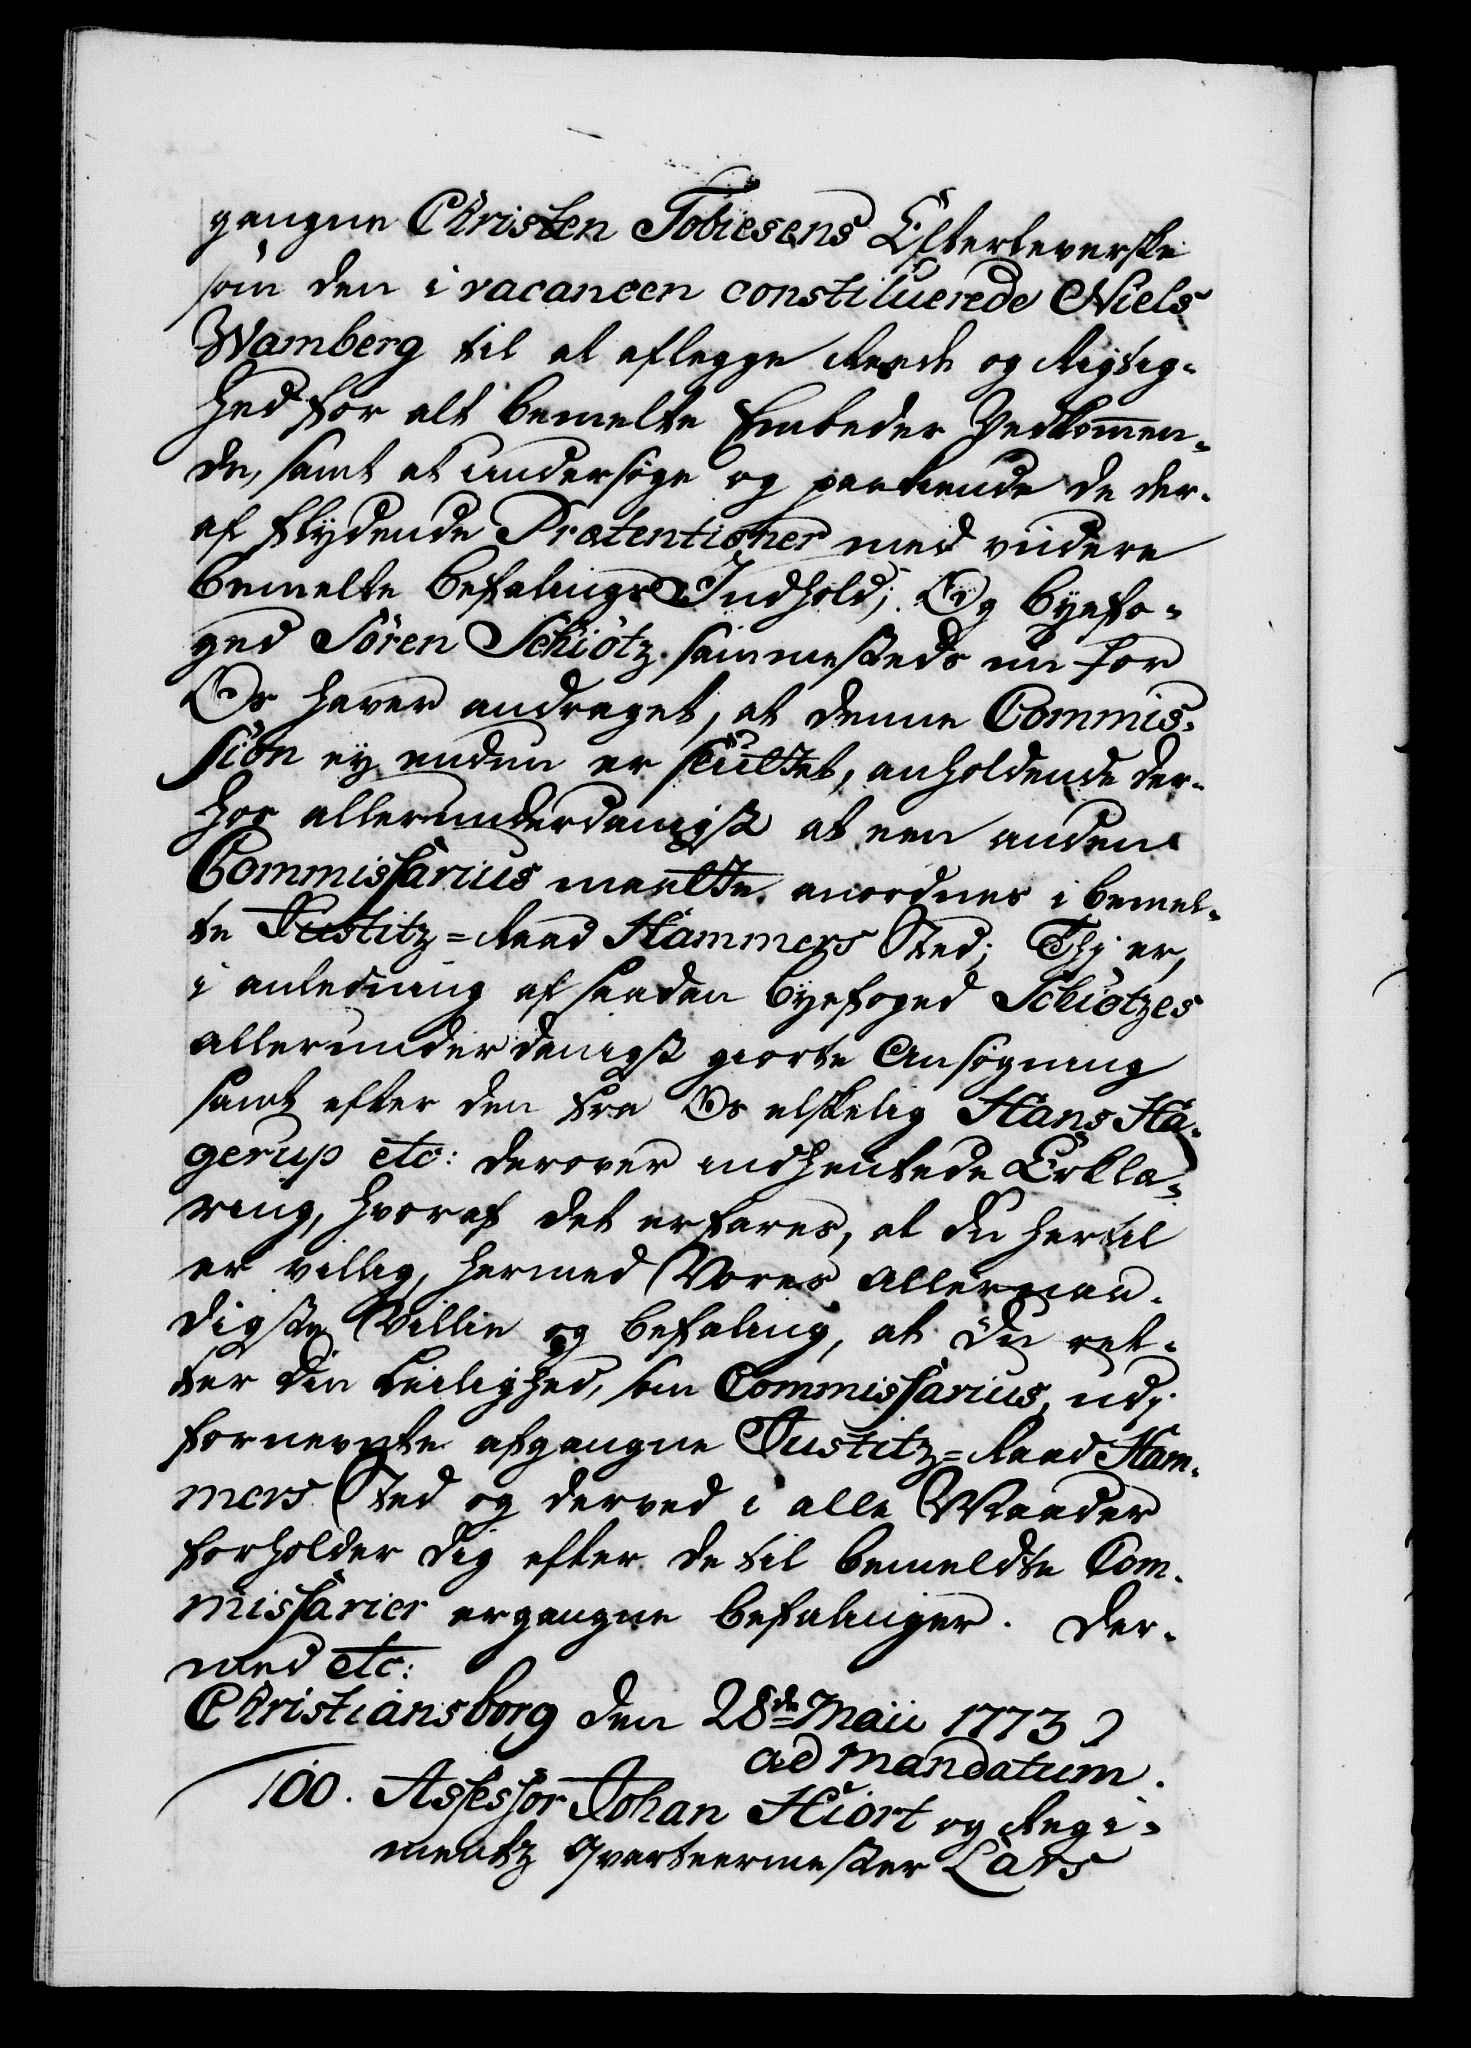 gangne Christen Tobiesens Efterleverske
som den i vacancen constituerede Niels
Wamberg til at aflegge Reede og Rigtig-
hed for alt bemelte Embeder Vedkommen-
de, samt at undersøge og paakiende de der-
af flydende Prætentioner med videre
bemelte Befalings Indhold; Og Byefo-
ged Sören Schiötz sammesteds nu for
Os haver andraget, at denne Commis-
sion ey enden er sluttet, anholdende der-
hos allerunderdanigst at een anden
Commissarius maatte anordnes i bemel-
te Justitz-Raad Hammers Sted; Thi er,
i anledning af saadan Byefoged Schiötzes
allerunderdanigst giorte Ansøgning
samt efter den fra Os elskelig Hans Ha-
gerup etc: derover indhentede Erklæ-
ring, hvoraf det erfares, at du hertil
er villig, hermed Vores allernaa-
digste Villie og Befaling, at du ret-
ter din Leilighed, som Commissarius, udi
fornevnte afgangne Justitz-Raad Ham-
mers Sted og derved i alle Maader
forholder dig efter de til bemeldte Com-
missarier ergangne Befalinger. Der-
med etc:
Christiansborg den 28de Maii 1773
ad mandatum.
100. Assessor Johan Hiort og Regi-
mentz Qvarteermester Lars